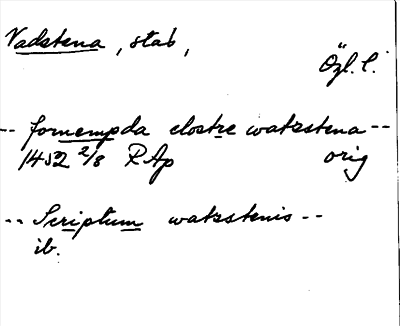 Vadstena, stad,
Ögl. l.
-- fornempda clostre watzstena --
1452 2/8 RAp orig
-- Scriptum watzstenis --
ib.